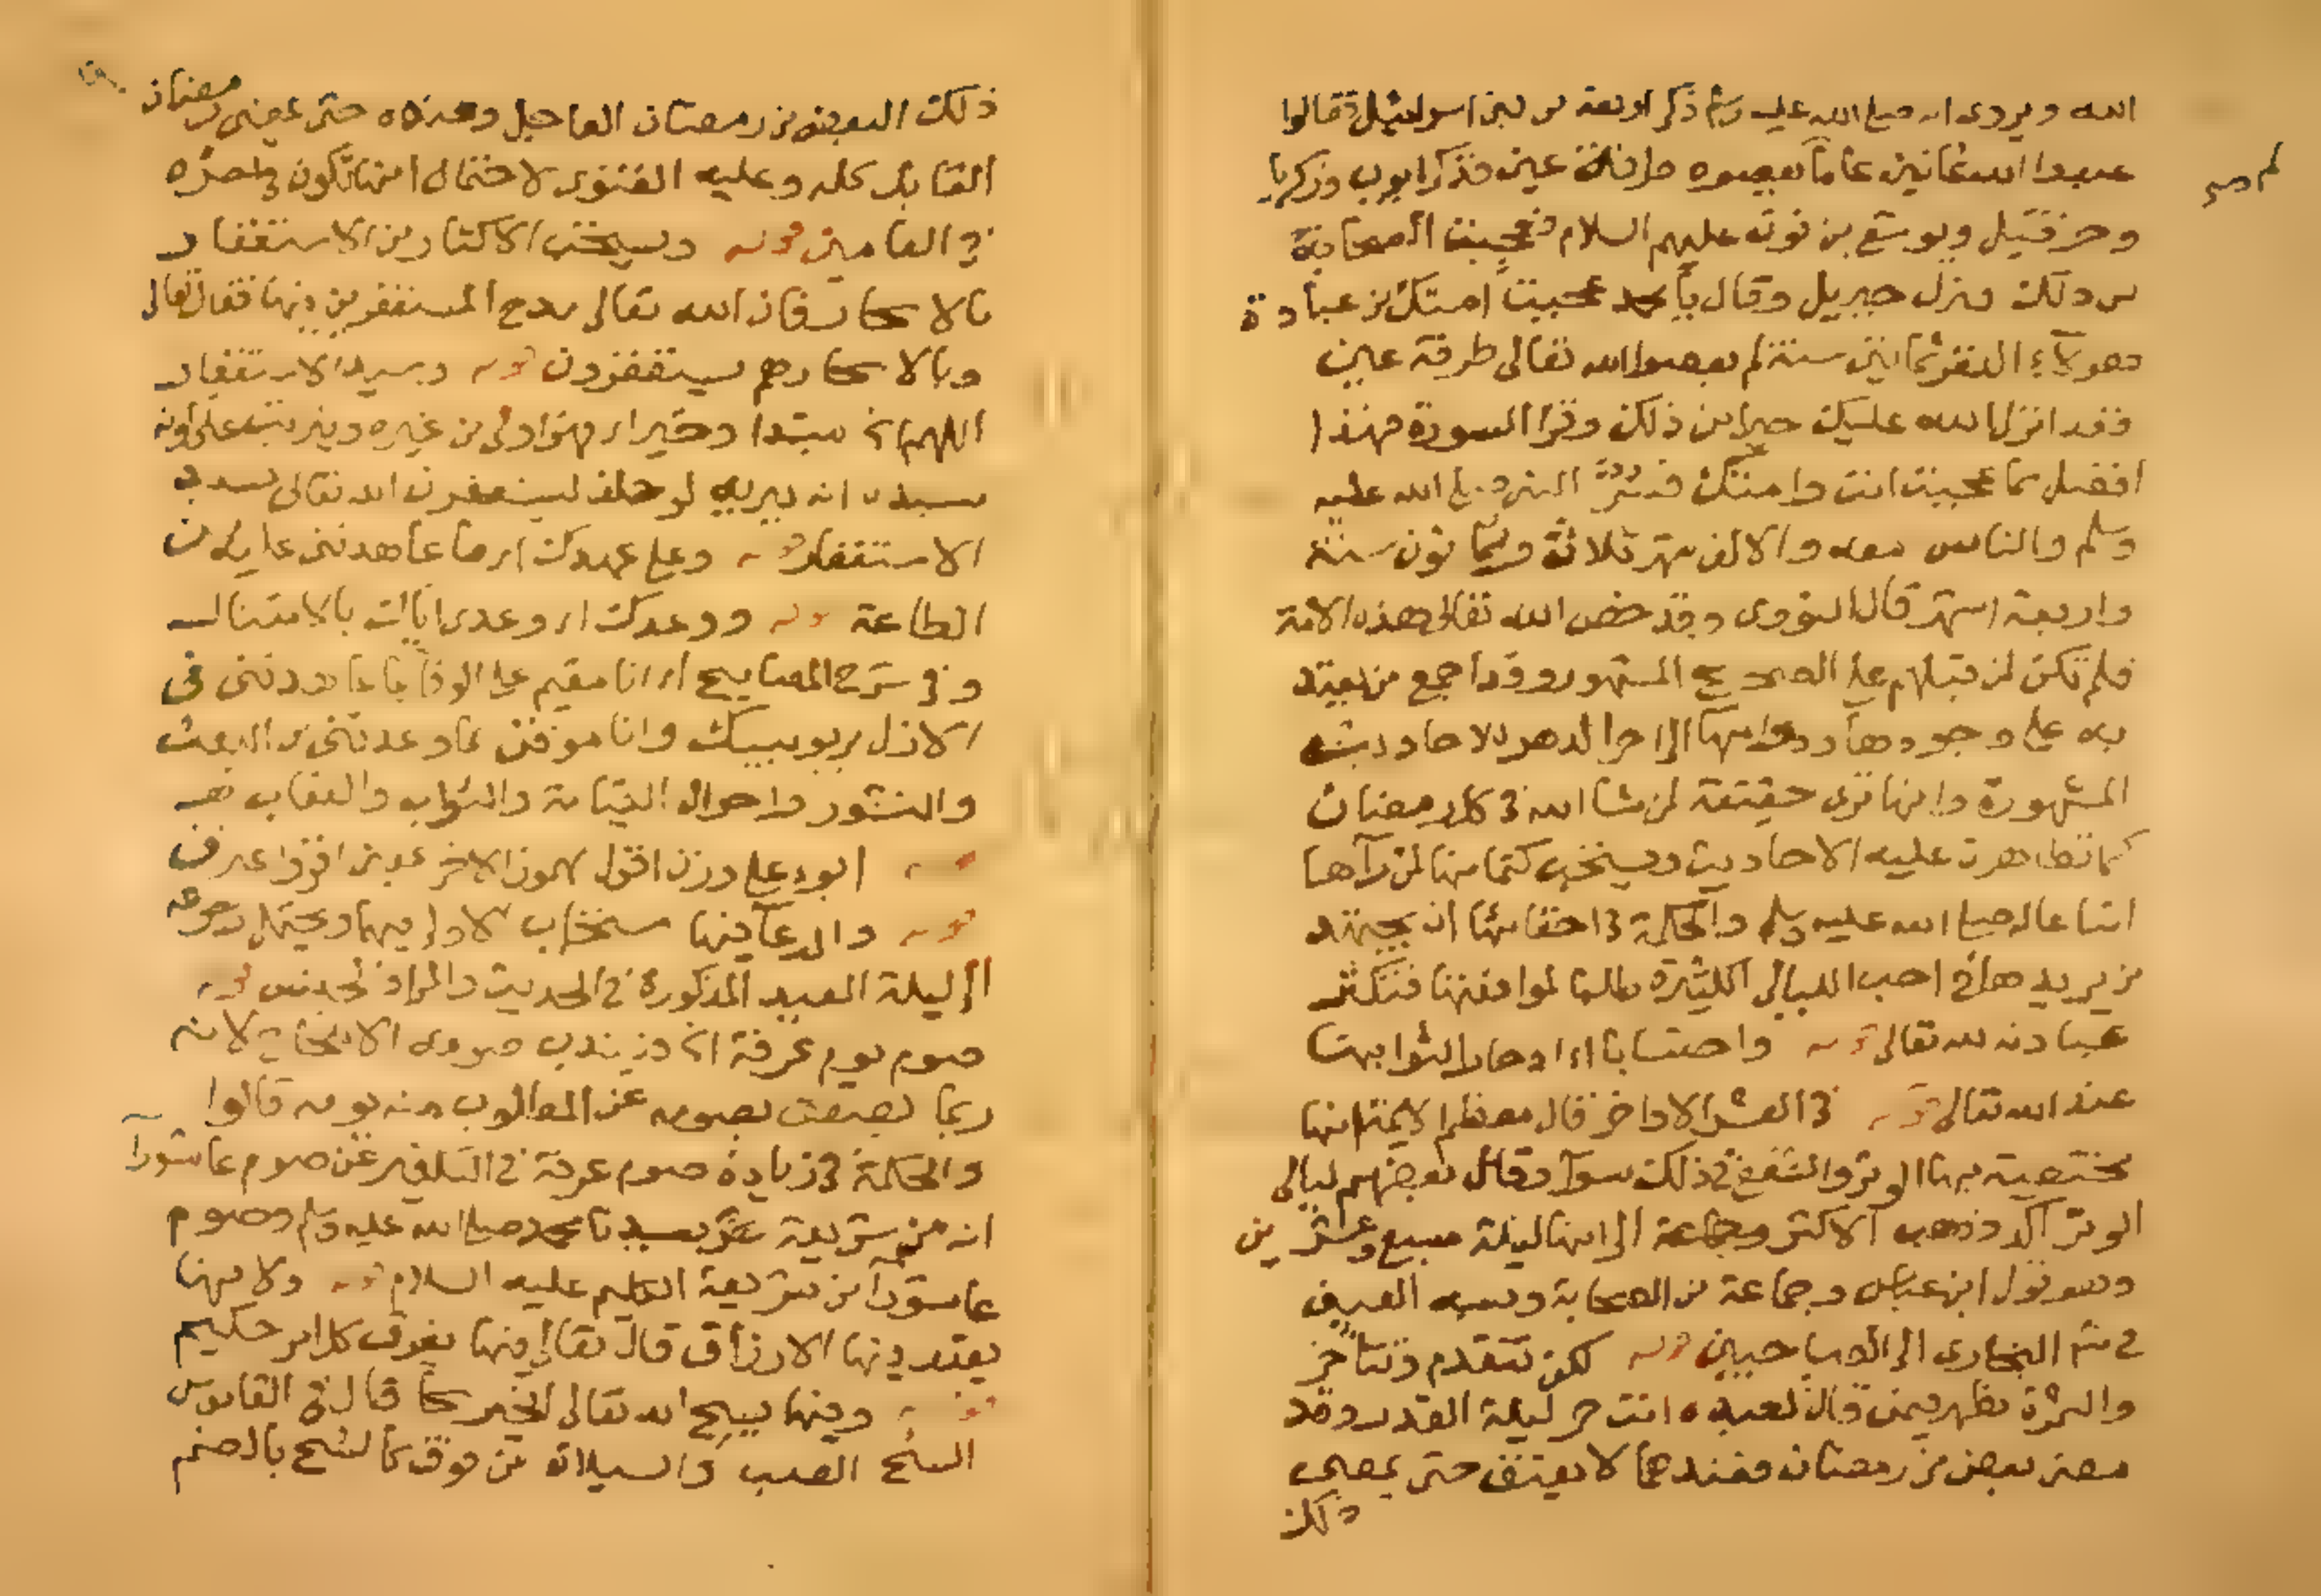 الله ويروى انه صلى الله عليه وسلم ذكر اربعة من بنى اسرائيل فقالوا
عبدوا الله ثمانين عاما يعصوه طرفة عين فذكر ايوب وزكريا
لم صح
وحزقيل ويوشع بن نون عليهم السلام فعجبت الصحابة
من ذلك فنزل جبريل وقال يا محمد عجبت امتك من عبادة
هولاء النفر ثمانين سنة لم يعصوا الله تعالى طرفة عين
فقد انزل الله عليك خيرا من ذلك وقرا السورة فهذا
افضل مما عجبت انت وامتك فسر النبى صلى الله عليه
وسلم والناس معه والالف شهر ثلاثة وثمانون سنة
واربعة اشهر قال النووى وقد خص الله تعالى هذه الامة
فلم تكن لمن قبلهم على الصحيح المشهور وقد اجمع من يعتد
به على وجودها ودوامها الى اخر الدهر للاحاديث
المشهورة وانها ترى حقيقة لمن شا الله فى كل رمضان
كما تظاهرت عليه الاحاديث ويستحب كتمانها لمن رآها
اتباعا له صلى الله عليه وسلم والحكمة فى اخفائها ان يجتهد
من يريدها فى احب الليالى الكثيرة طلبا لموافقتها فتكثر
عبادته لله تعالى قوله واحتسابا اى ادخارا لثوابها
عند الله تعالى قوله فى العشر الاواخر قال معظم الائمة انها
مختصة بها الوتر والشفع فى ذلك سوآ وقال بعضهم ليالى
الوتر آكد وذهب الاكثر وجماعة الى انها ليلة سبع وعشرين
وهو قول ابن عباس وجماعة من الصحابة ونسبه العينى
فى شرح البخارى الى الصاحبين قوله لكن تتقدم وتتأخر
والثمرة تظهر فيمن قال لعبده انت حر ليلة القدر وقد
مضى بعض من رمضان فعندهما لا يعتق حتى يمضى
ذلك
ذلك البعض من رمضان العاجل وعنده حتى يمضى رمضان
القابل كله وعليه الفتوى لاحتمال انها تكون فى
فى العامين قوله ويستحب الاكثار من الاستغفار
بالاسحار فان الله تعالى مدح المستغفرين فيها فقال تعالى
وبالاسحار هم يستغفرون قوله وسيد الاستغفار
اللهم الخ مبتدا وخير اى فهو اولى من غيره ويترتب على كونه
سيده انه يبر به لو حلف ليستغفرن الله تعالى بسيد
الاستغفار قوله وعلى عهدك اى ما عاهدتنى عليه من
الطاعة قوله ووعدك اى وعدى اياك بالامتثال
وفى شرح المصابيح اى انا مقيم على الوفا بما عاهدتنى فى
الازل بربوبيتك وانا موقن بما وعدتنى من البعث
والنشور واحوال القيامة والثواب والعقاب
ابوء على وزن اقول مهموز الاخر بمعنى اقر واعترف
قوله والدعآ فيها مستجاب الاولى فيها ويحتمل رجوعه
الى ليلة العيد المذكورة فى الحديث والمراد الجنس قوله
صوم يوم عرفة الخ وزيندب صومه الا لحاج لانه
ربما يضعف بصومه عن المطلوب منه يومه قالوا
والحكمة فى زيادة صوم عرفة فى التكفير عن صوم عاشورآ
انه من شريعة سيدنا محمد صلى الله عليه وسلم وصوم
عاشورآ من شريعة الكليم عليه السلام قوله ولانها
يقدر فيها الارزاق قال تعالى فيها يفرق كل امر حكيم
قوله وفيها يسح الله تعالى الخير سحا قال فى القاموس
السح الصب والسيلان من فوق كالسح بالضم